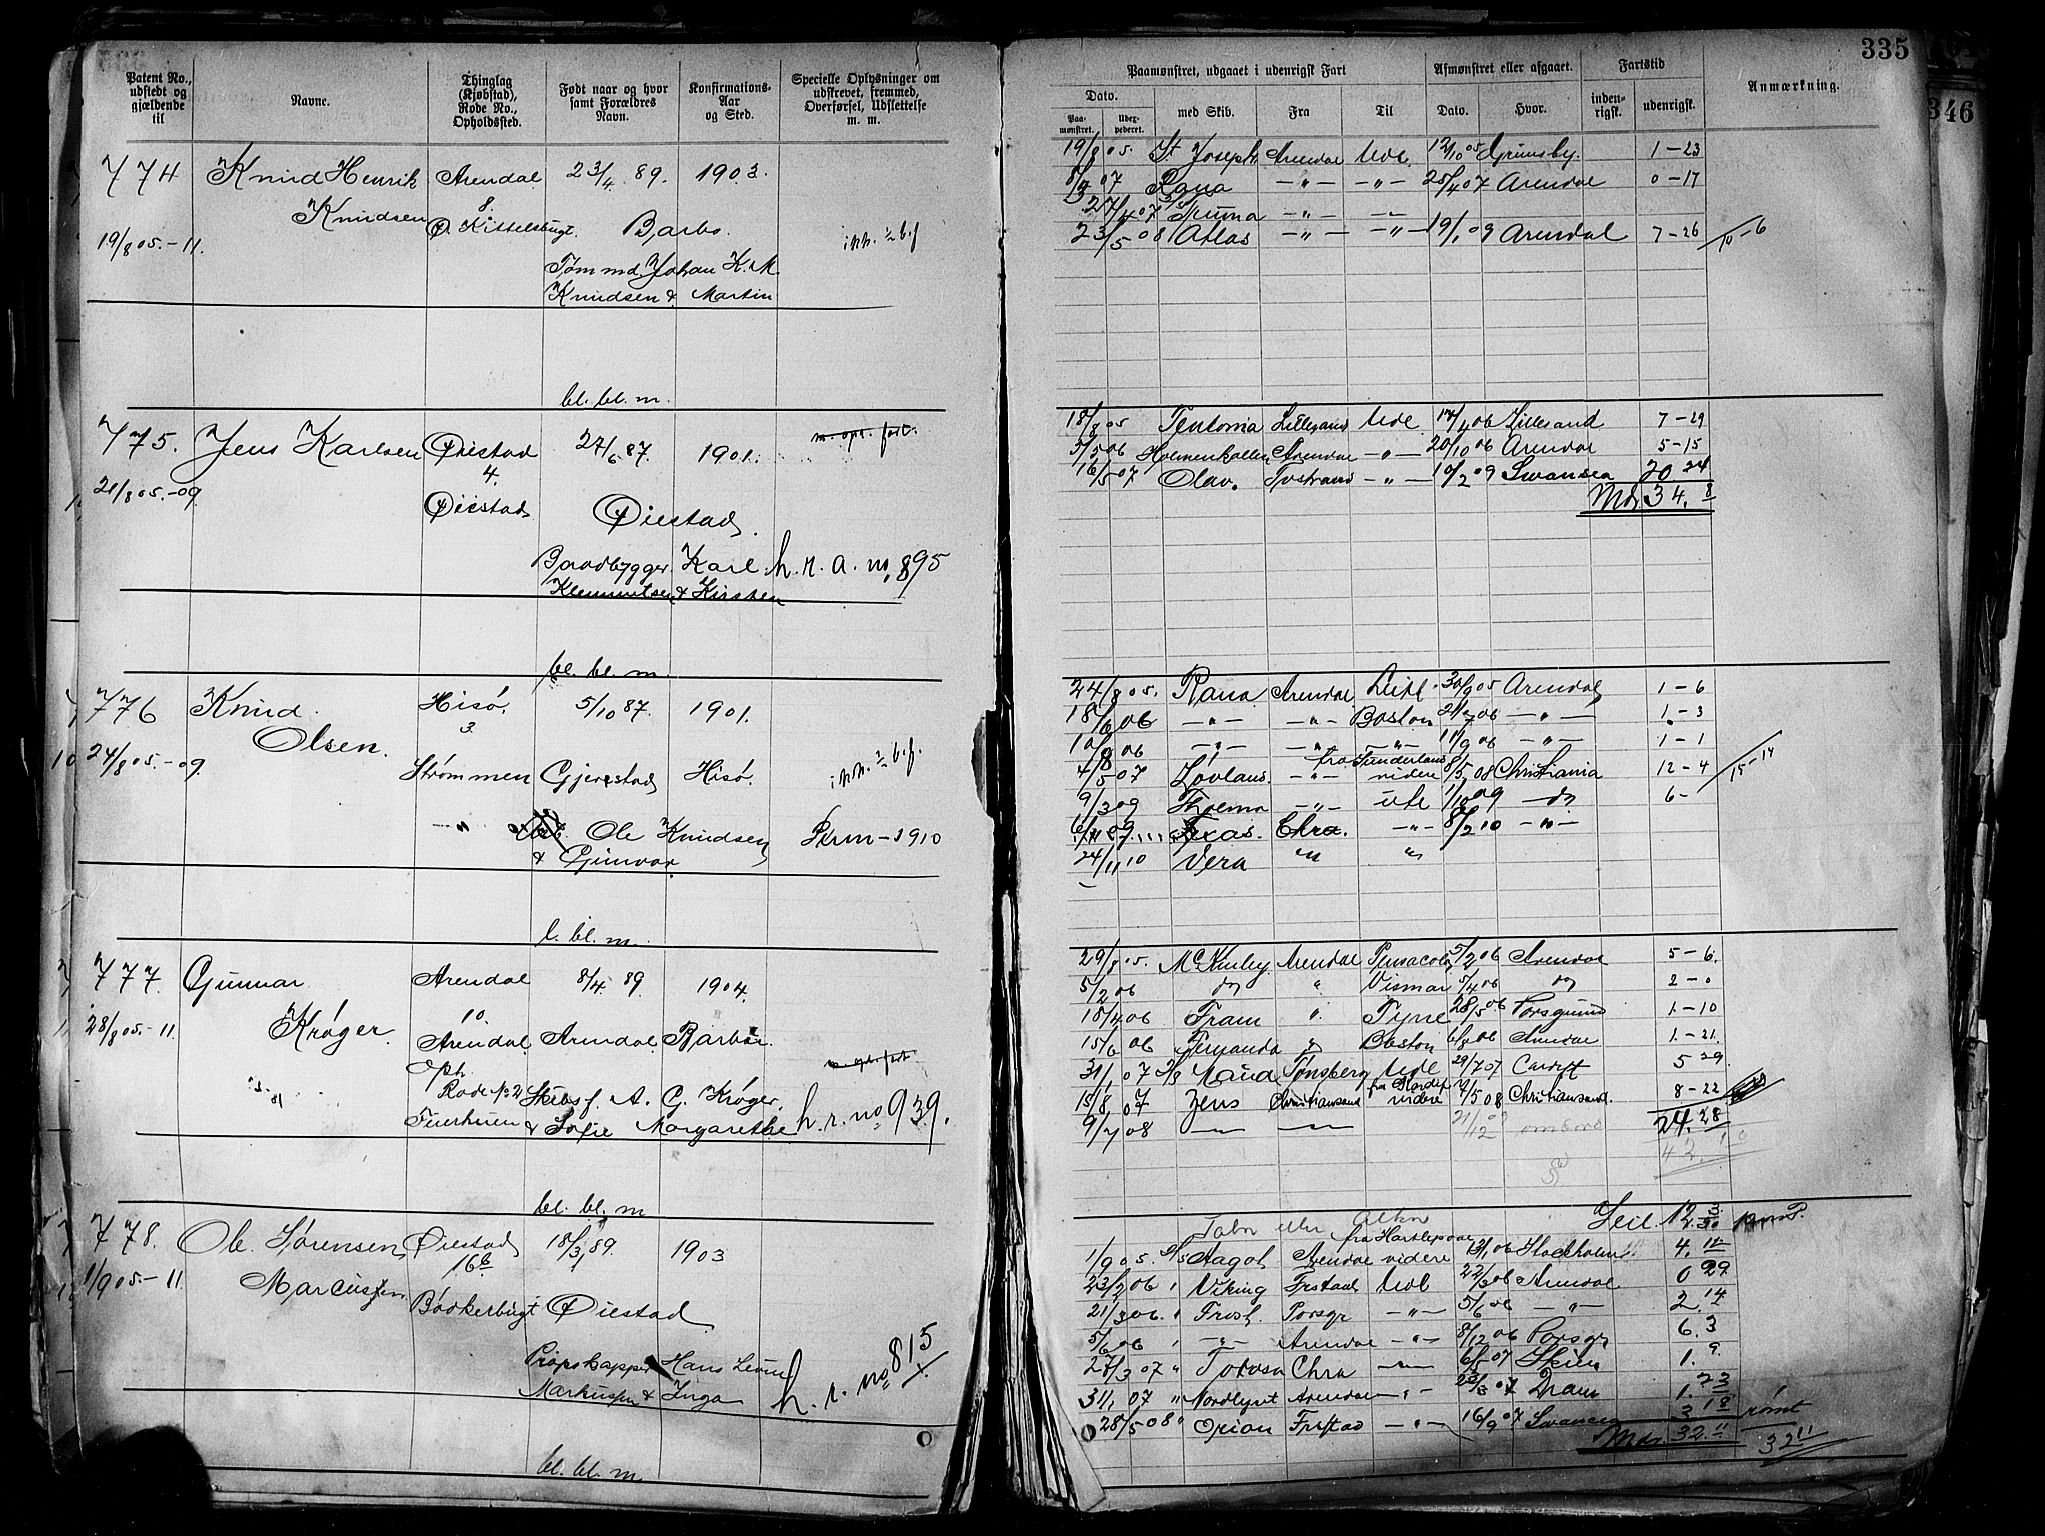 335
346
Patent No., udstedt og gjældende til
Navne.
Thinglag (Kjøbstad), Rode No., Opholdssted.
Født naar og hvor samt Forældres Navn.
Konfirmations-Aar og Sted.
Specielle Oplysninger om udskrevet, fremmed, Overførsel, Udslettelse m. m.
Paamønstret, udgaaet i udenrigsk Fart
Afmønstret eller afgaaet.
Fartstid
Anmærkning.
Dato.
Paamønstret.
Udexpederet.
med Skib.
Fra
Til
Dato.
Hvor.
indenrigsk.
udenrigsk.
774 Knud Henrik Arendal 23/4 89. 1903.
Knudsen 8.
Ø. Kittelsbugt. Barbo.
19/8 05.-11.
Tømmd. Johan K. M.
Knudsen & Martin
bl. bl. m.
19/8 05. St. Joseph Arendal Udl. 12/10 05 Grimsby. 1-23
07 Rana -"- -"- 25/4 07 Arendal 0-17
27/4 07 -"- -"-
23/5 08 Atlas -"- -"- 19/1 09 Arendal 7-26
775. Jens Karlsen Øiestad 27/6 87. 1901. m. opr. fart.
21/8 05.-09. 4.
Øiestad Øiestad
Baadbygger Karl h. r. a. no. 895
Klemmetsen & Kirsten
bl. bl. m.
18/8 05 Teutonia Lillesand Udl 17/4 06 Lillesand 7-29
3/5 06 Holmenkollen Arendal -"- 20/10 06 Arendal 5-15
16/5 07 Olav. Tvstrand -"- 10/2 09 Swansea 20 24
Mdr. 34. 8
776 Knud Hisø. 5/10 87. 1901.
Olsen. 3.
24/8 05.-09. Strømmen Gjerestad Hisø.
-"- Ole Knudsen 1910
& Gunvor.
bl. bl. m.
24/8 05. Rana Arendal 30/9 05 Arendal 1-6
18/6 06 -"- -"- Boston 21/7 06 -"- 1-3
10/8 06 -"- -"- -"- 11/9 06 -"- 1-1
fra Sunderland
4/5 07 Løvlans. -"- videre 8/5 08 Christiania 12-4 15-14
9/3 09 Thelma -"- ute 1/10 09 -do 6-
Texas. Chra. -"- 8/2 10 -"-
24/11 10 Vera
777. Gunnar Arendal 8/4 89. 1904.
28/8 05.-11. Krøger. 10.
Arendal Arendal Barbo.
Oph. m. opr. fart
Rode No 2 A. G. Krøger.
& Sofie Margarethe h. r. no. 939.
bl. bl. m
29/8 05. McKinley Arendal Pensacola 5/2 06 Arendal 5-6.
5/2 06 do " Vismar 5/4 06 do 2-0
18/4 06 Fram " Tyne 28/5 06 Porsgrund 1-10
15/6 06 Fernanda " Boston 6/8 06 Arendal 1-21
31/1 07 Maud Tønsberg Udl 29/7 07 Cardiff 5 29
15/8 07 Zens Christiansand videre 7/5 08 Christiansand. 8-22
9/7 08 24. 28
778. Ole Sørensen Øiestad 18/3 89. 1903
1/9 05.-11 Marcussen. 16b
Bøkkerbugt Øiestad
Hans Levin
Markussen & Inga h. r. no. 815
bl. bl. m
Seil. 12
fra Hartlepool
1/9 05. Aagot Arendal videre Stockholm 4.
23/2 06 Viking Frstad Udl 22/6 06 Arendal 0 29
21/3 06 Frost. Porsgr -"- 5/6 06 -"- 2. 14
5/6 06 -"- Arendal -"- 8/12 06 Porsgr 6. 3
27/3 07 Chra Skien 1. 9
31/1 07 Nordlyset Arendal -"- 23/3 07 Dram 1. 23
28/5 08 Orion Frstad -"- 16/9 07 Swansea 3 18 rømt
Mdr. 32. 11 32 11